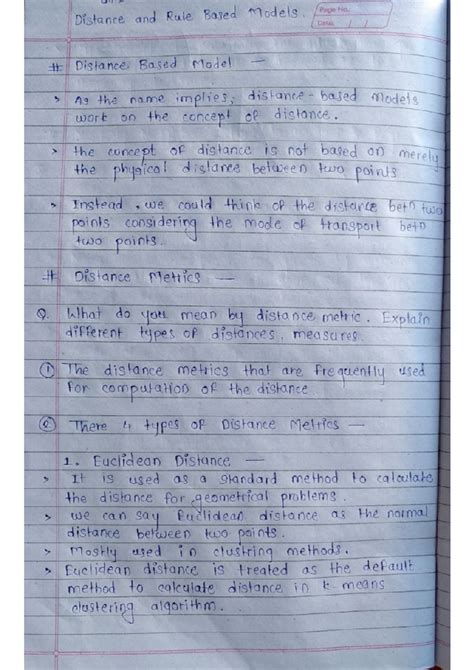 Distance and Rule Based Models.
Page No.
Date
# Distance Based Model —
> As the name implies, distance-based models
work on the concept of distance.
> the concept of distance is not based on merely
the physical distance between two points
> Instead, we could think of the distance betn two
points considering the mode of transport betn
two points.
# Distance Metrics —
Q. What do you mean by distance metric. Explain
different types of distances. measures
① The distance metrics that are frequently used
for computation of the distance
② There 4 types of Distance Metrics —
1. Euclidean Distance —
> It is used as a standard method to calculate
the distance for geometrical problems.
> we can say Euclidean distance as the normal
distance between two points.
> Mostly used in clustring methods.
> Euclidean distance is treated as the default
method to calculate distance in k-means
clustering algorithm.